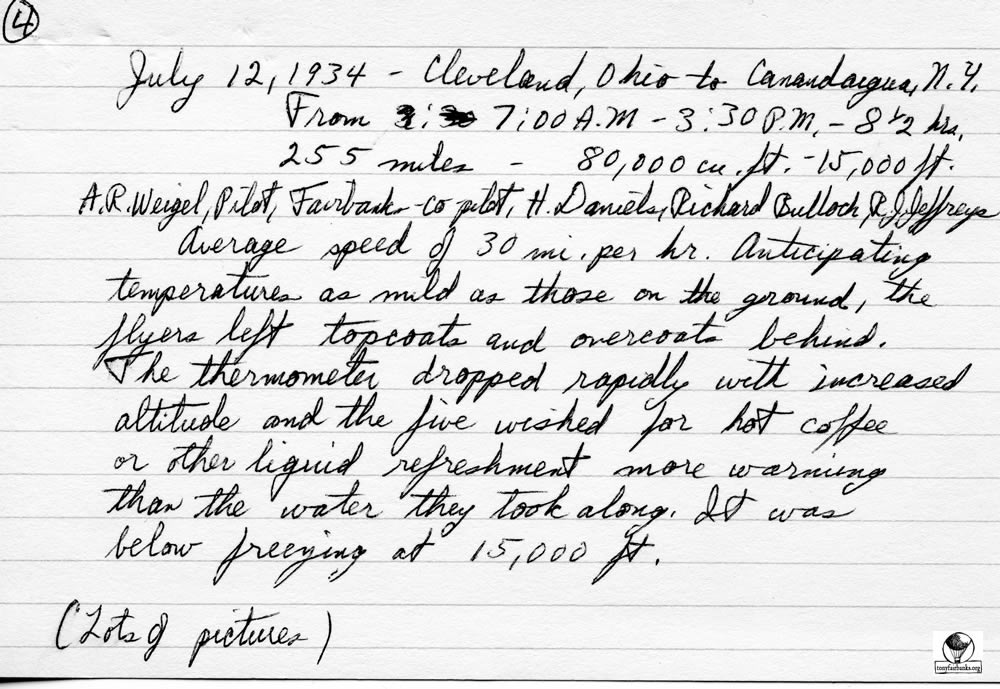 4
July 12, 1934 - Cleveland, Ohio to Canandaigua, N.Y.
From 7:00 A.M - 3:30 P.M. - 8 1/2 hrs.
255 miles - 80,000 cu. ft. - 15,000 ft.
A.R. Weigel, Pilot, Fairbanks - co pilot, H. Daniels, Richard Bulloch, R.J. Jeffreys
Average speed of 30 mi. per hr. Anticipating
temperatures as mild as those on the ground, the
flyers left topcoats and overcoats behind.
The thermometer dropped rapidly with increased
altitude and the five wished for hot coffee
or other liquid refreshment more warming
than the water they took along. It was
below freezing at 15,000 ft.
(Lots of pictures)
tonyfairbanks.org